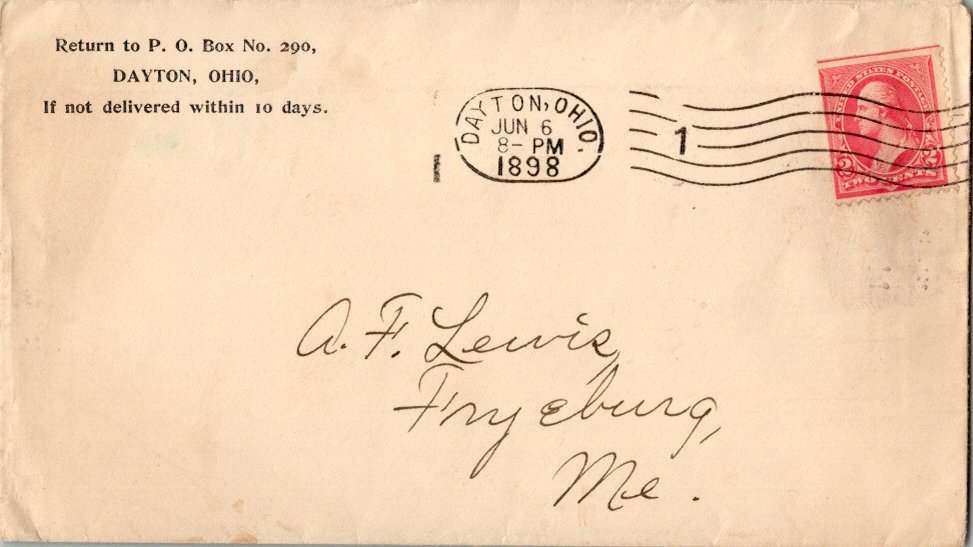 Return to P. O. Box No. 290,
DAYTON, OHIO,
If not delivered within 10 days.
DAYTON, OHIO.
JUN 6
8- PM
1898
1
UNITED STATES POSTAGE
2 2
TWO CENTS
A. F. Lewis,
Fryeburg,
Me.